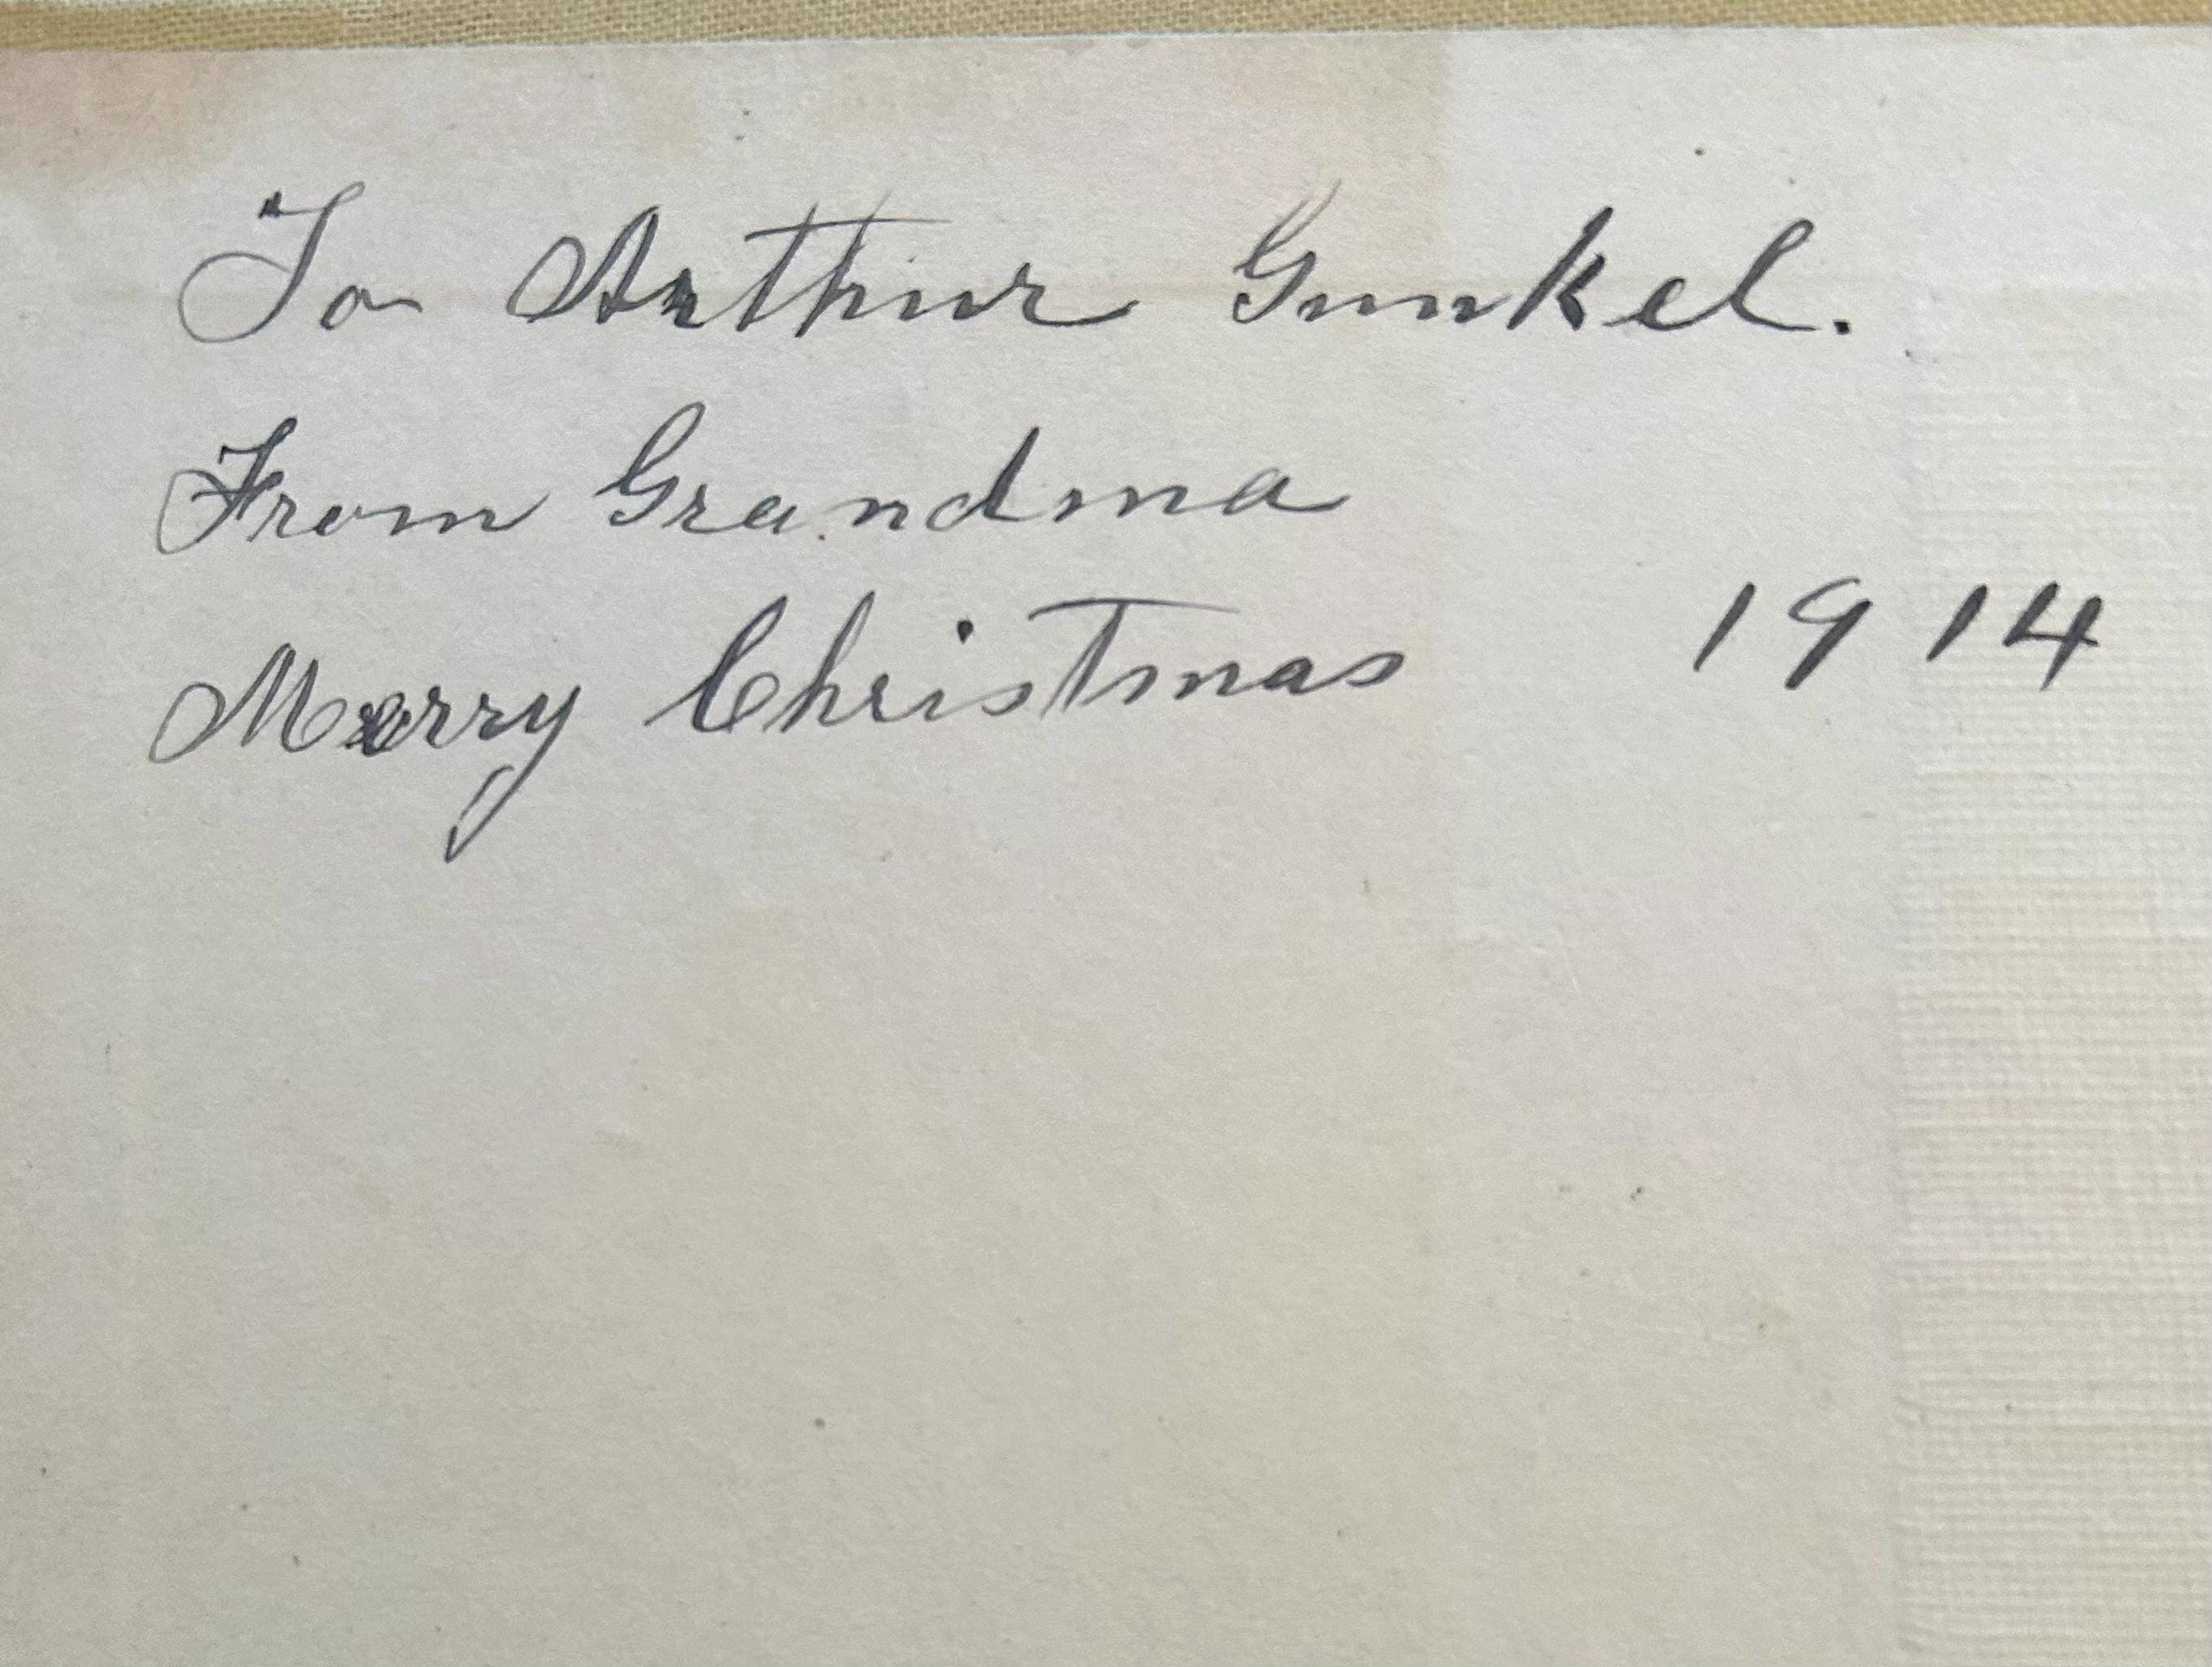 To Arthur Gunkel.
From Grandma
Merry Christmas 1914